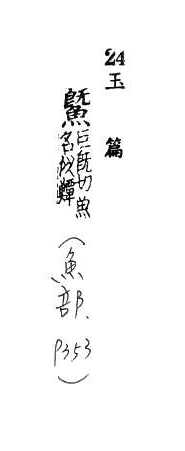 24
玉篇
鱀巨旣切魚
名似鱓
(魚部. P353)